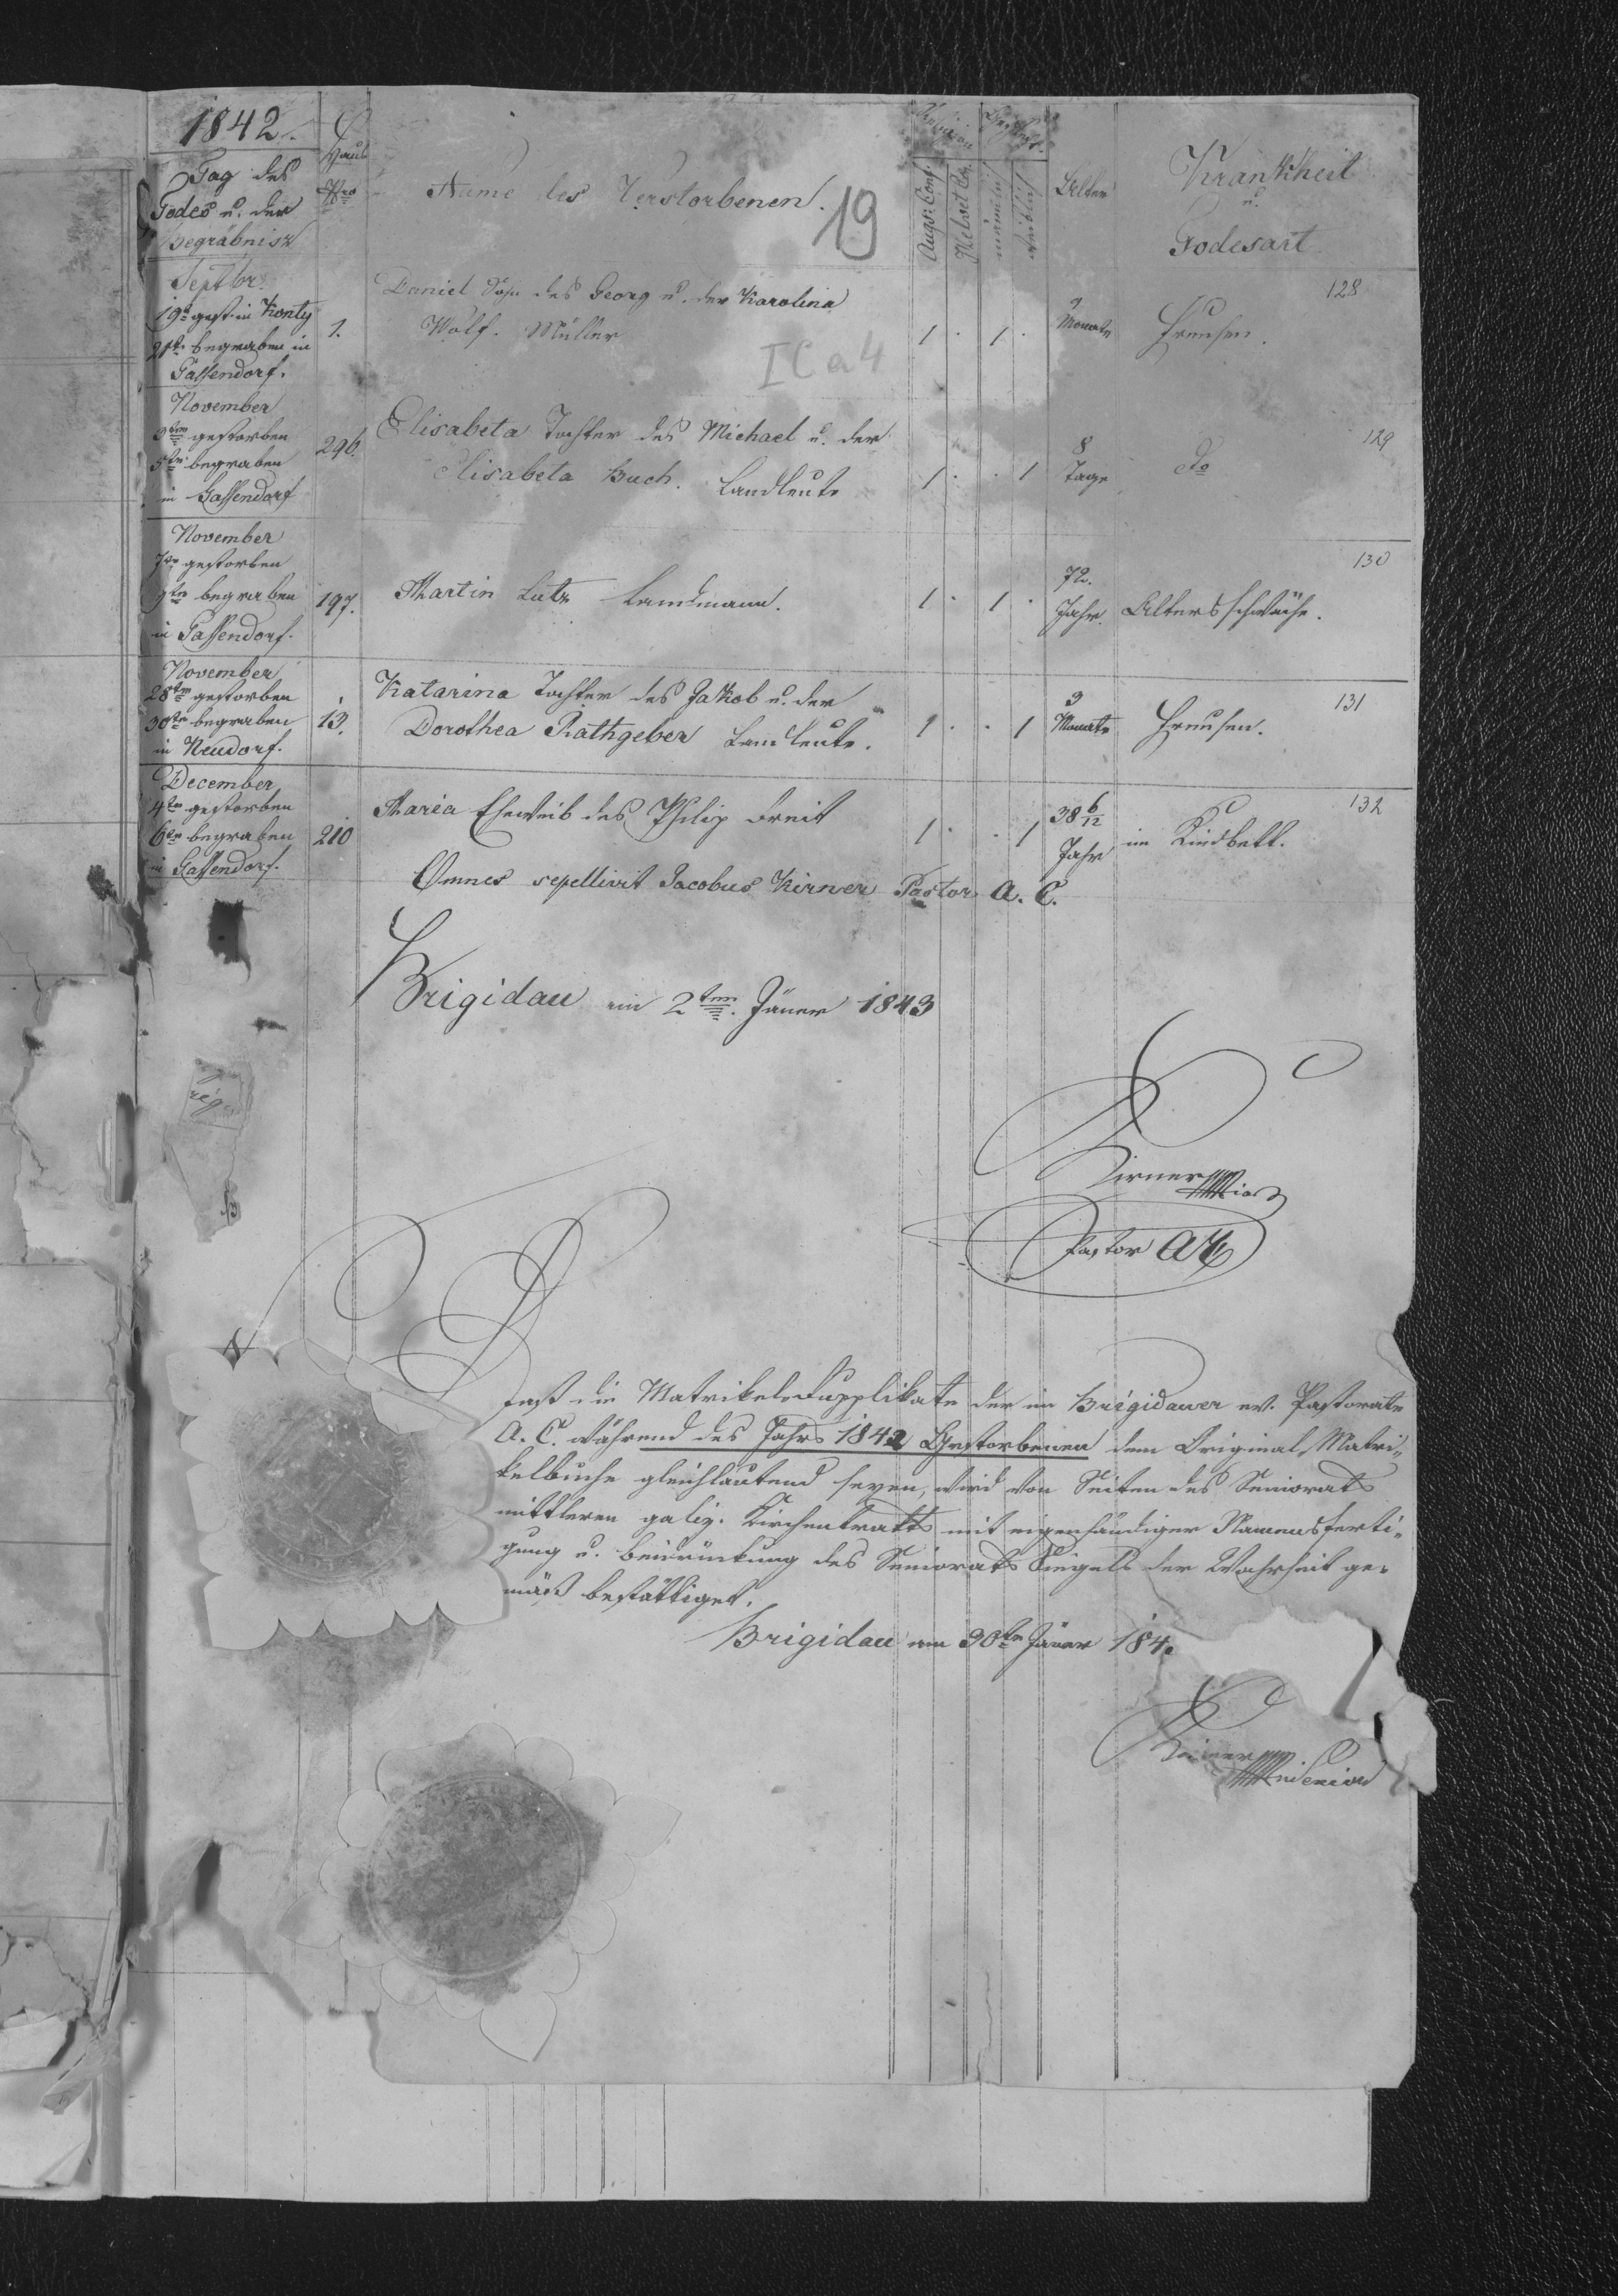 1842.
Haus
Nro
Tag des
Todes u. der
Begräbnisz
Name des Verstorbenen.
19
Religion
Augs: Conf:
Helvet Co.
männlich
weiblich
Alter
Krankheit
u.
Todesart
Septbr.
19t gest. in Konty
21t begraben in
Gassendorf.
1.
Daniel Sohn des Georg u. der Karolina
Wolf. Müller
1 . 1 .
Monate
Freusen.
128
IC a 4
November
3ten gestorben
5ten begraben
in Gassendorf
296.
Elisabeta Tochter des Michael u. der
Elisabeta Buch. Landleute
1 . . 1
8
Tage
do
129
November
7ten gestorben
9ten begraben
in Gassendorf.
197.
Martin Lutz Landmann.
1 . 1 .
72.
Jahr.
Altersschwäche.
130
November
28ten gestorben
30ten begraben
in Neudorf.
13.
Katarina Tochter des Jakob u. der
Dorothea Rathgeber Landleute.
1 . . 1
3
Monate
Freusen.
131
December
4ten gestorben
6ten begraben
in Gassendorf.
210
Maria Eheweib des Philip Breit
1 . . 1
38 6/12
Jahr
im Kindbett.
132
Omnes sepellivit Jacobus Kirner Pastor A. C.
Brigidau am 2ten. Jäner 1843
Kirner
Pastor AC
Daß die Matrikels Dupplikate der im Brigidauer ev. Pastorate
A. C. während des Jahrs 1842 Gestorbenen dem Original Matri-
kelbuche gleichlautend seyen, wird von Seiten des Seniorats
mittleren galiz. Kirchentrakts mit eigenhändiger Namensferti-
gung u. Beidrückung des Seniorats Siegels der Wahrheit ge-
mäß bestättiget.
Brigidau am 30ten Jäner 184
Kirner
Senior